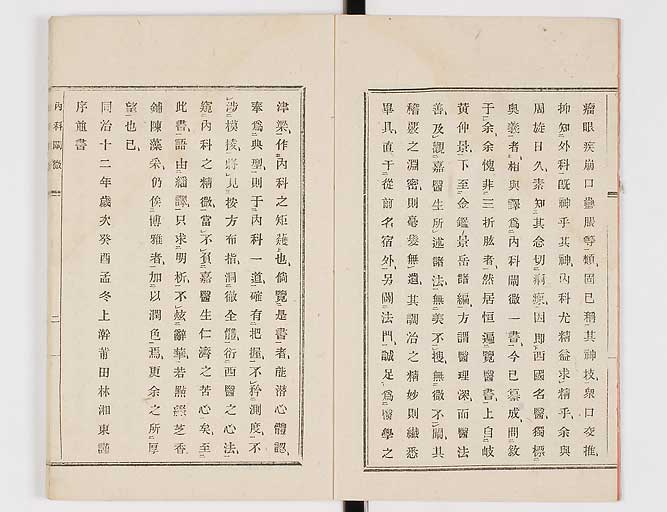 瘤眼疾崩口臌脹等類固已稱其神技衆口交推
抑知外科既神乎其神內科尤精益求精乎余與
周旋日久素知其念切痌瘝因即西國名醫獨標
奧義者相與譯爲內科闡微一書今已纂成問敘
于余余愧非三折肱者然居恒遍覽醫書上自岐
黃仲景下至金鑑景岳諸編方謂醫理深而醫法
善及觀嘉醫生所述諸法無美不搜無微不闡其
稽覈之淵密則毫髮無遺其調治之精妙則纖悉
畢具直于從前名宿外另闢法門誠足爲醫學之
津梁作內科之矩矱也倘覽是書者能潛心體認
奉爲典型則于內科一道確有把握不矜測度不
涉模棱將見按方布指洞徹全體衍西醫之心法
窺內科之精微當不負嘉醫生仁濟之苦心矣至
此書語由繙譯只求明析不炫辭華若點綴芝香
鋪陳藻采仍俟博雅者加以潤色焉更余之所厚
望也已
同治十二年歲次癸酉孟冬上澣莆田林湘東謹
序並書
內科闡微
二